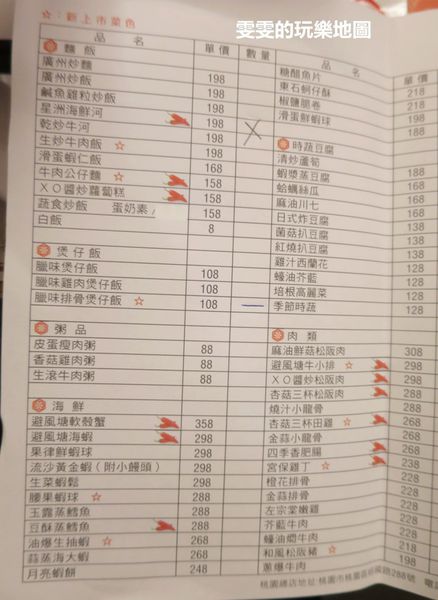 雯雯的玩樂地圖
☆:新上市菜色
品名 單價 數量
麵飯
廣州炒麵 198
廣州炒飯 198
鹹魚雞粒炒飯 198
星洲海鮮河 198
乾炒牛河 198
生炒牛肉飯☆ 198
滑蛋蝦仁飯 168
牛肉公仔麵☆ 158
XO醬炒蘿蔔糕 158
蔬食炒飯 蛋奶素 158
白飯 8
煲仔飯
臘味煲仔飯 108
臘味雞肉煲仔飯 108
臘味排骨煲仔飯☆ 108
粥品
皮蛋瘦肉粥 88
香菇雞肉粥 88
生滾牛肉粥 88
海鮮
避風塘軟殼蟹 358
避風塘海蝦 298
果律鮮蝦球 298
流沙黃金蝦(附小饅頭) 298
生菜蝦鬆 298
腰果蝦球☆ 288
玉露蒸鱈魚 288
豆酥蒸鱈魚 288
油爆生抽蝦☆ 268
蒜蒸海大蝦 268
月亮蝦餅 248
品名 單價
糖醋魚片 218
東石蚵仔酥 218
椒鹽脆卷 198
滑蛋鮮蝦球 188
時蔬豆腐
清炒蘆筍 188
蝦漿蒸豆腐 188
蛤蠣絲瓜 168
麻油川七 138
日式炸豆腐 138
菌菇扒豆腐 138
紅燒扒豆腐 138
雞汁西蘭花 128
蠔油芥藍 128
培根高麗菜 128
季節時蔬 128
肉類
麻油鮮菇松阪肉 308
避風塘牛小排☆ 298
XO醬炒松阪肉 298
杏菇三杯松阪肉 288
燒汁小龍骨 268
杏菇三杯田雞☆ 268
金蒜小龍骨 268
四季香肥腸 238
宮保雞丁☆ 238
橙花排骨 228
金蒜排骨 228
左宗棠嫩雞 228
芥藍牛肉 228
蠔油燜牛肉 218
和風松阪豬☆ 218
蔥爆牛肉 198
桃園總店地址:桃園市桃園區 路288號 電